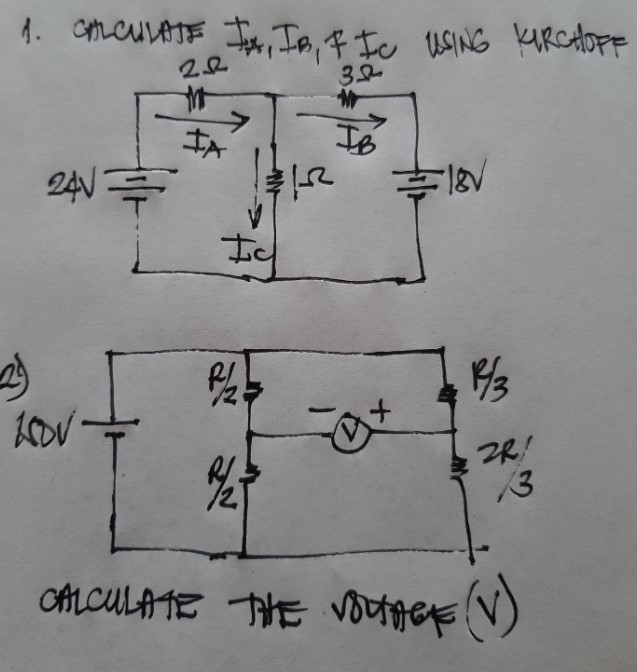 1. CALCULATE IA, IB, & IC USING KIRCHOFF
2Ω 3Ω
IA IB
24V 1Ω 18V
IC
2)
R/2 R/3
- V +
R/2 2R/3
CALCULATE THE VOLTAGE (V)